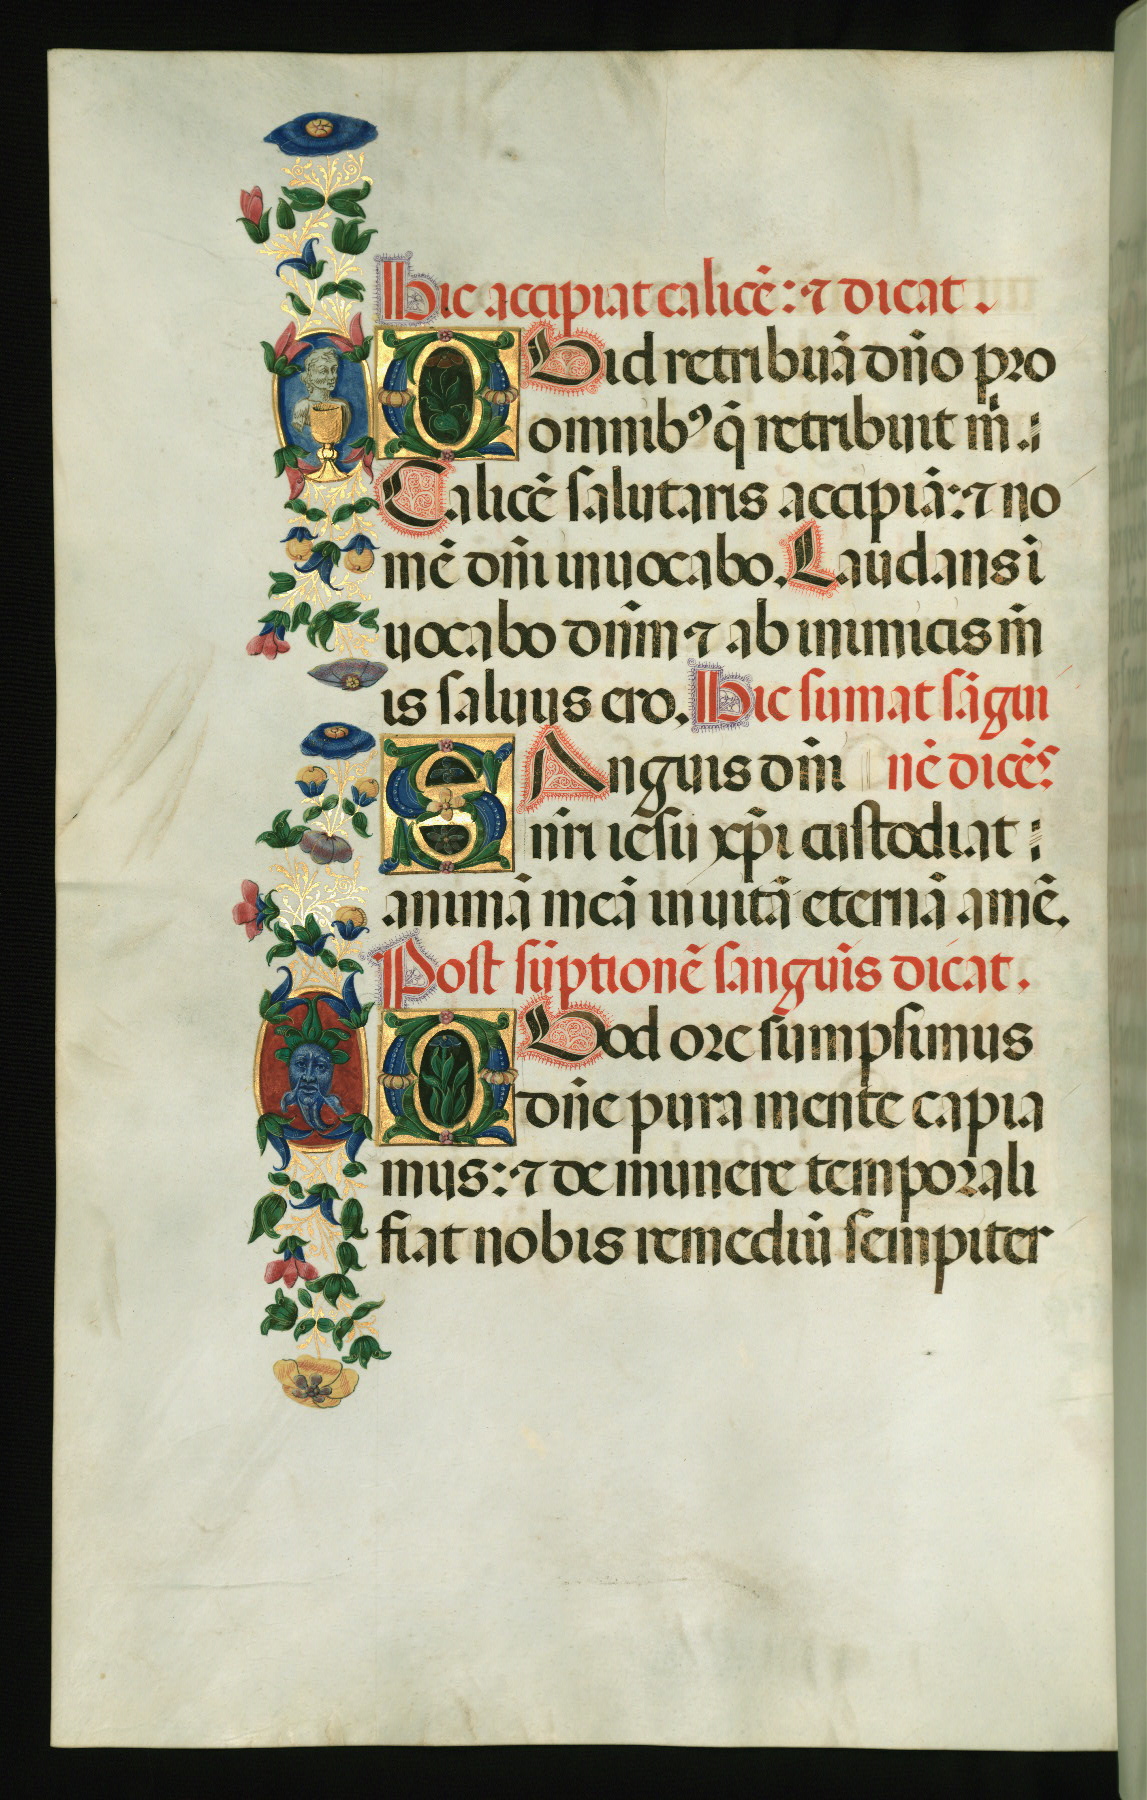 Hic accipiat calicē: ⁊ dicat.
QUid retribuā dn̄o pro
omnibꝰ q̄ retribuit m̄.:
Calicē salutaris accipiā: ⁊ no
mē dn̄i inuocabo. Laudans ī
uocabo dn̄m ⁊ ab inimicis m̄
is saluus ero. Hic sumat sāgui
SAnguis dn̄i nē dicēs
nr̄i iesu xp̄i custodiat :
animā meā in uitā eternā amē.
Post sūptionē sanguīs dicat.
QUod ore sumpsimus
dn̄e pura mente capia
mus: ⁊ de munere temporali
fiat nobis remediū sempiter